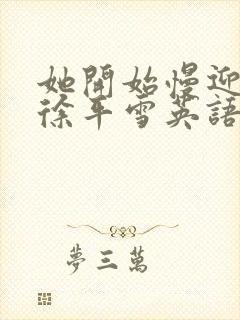 她開始慢迎
徐平雪英語
夢三萬